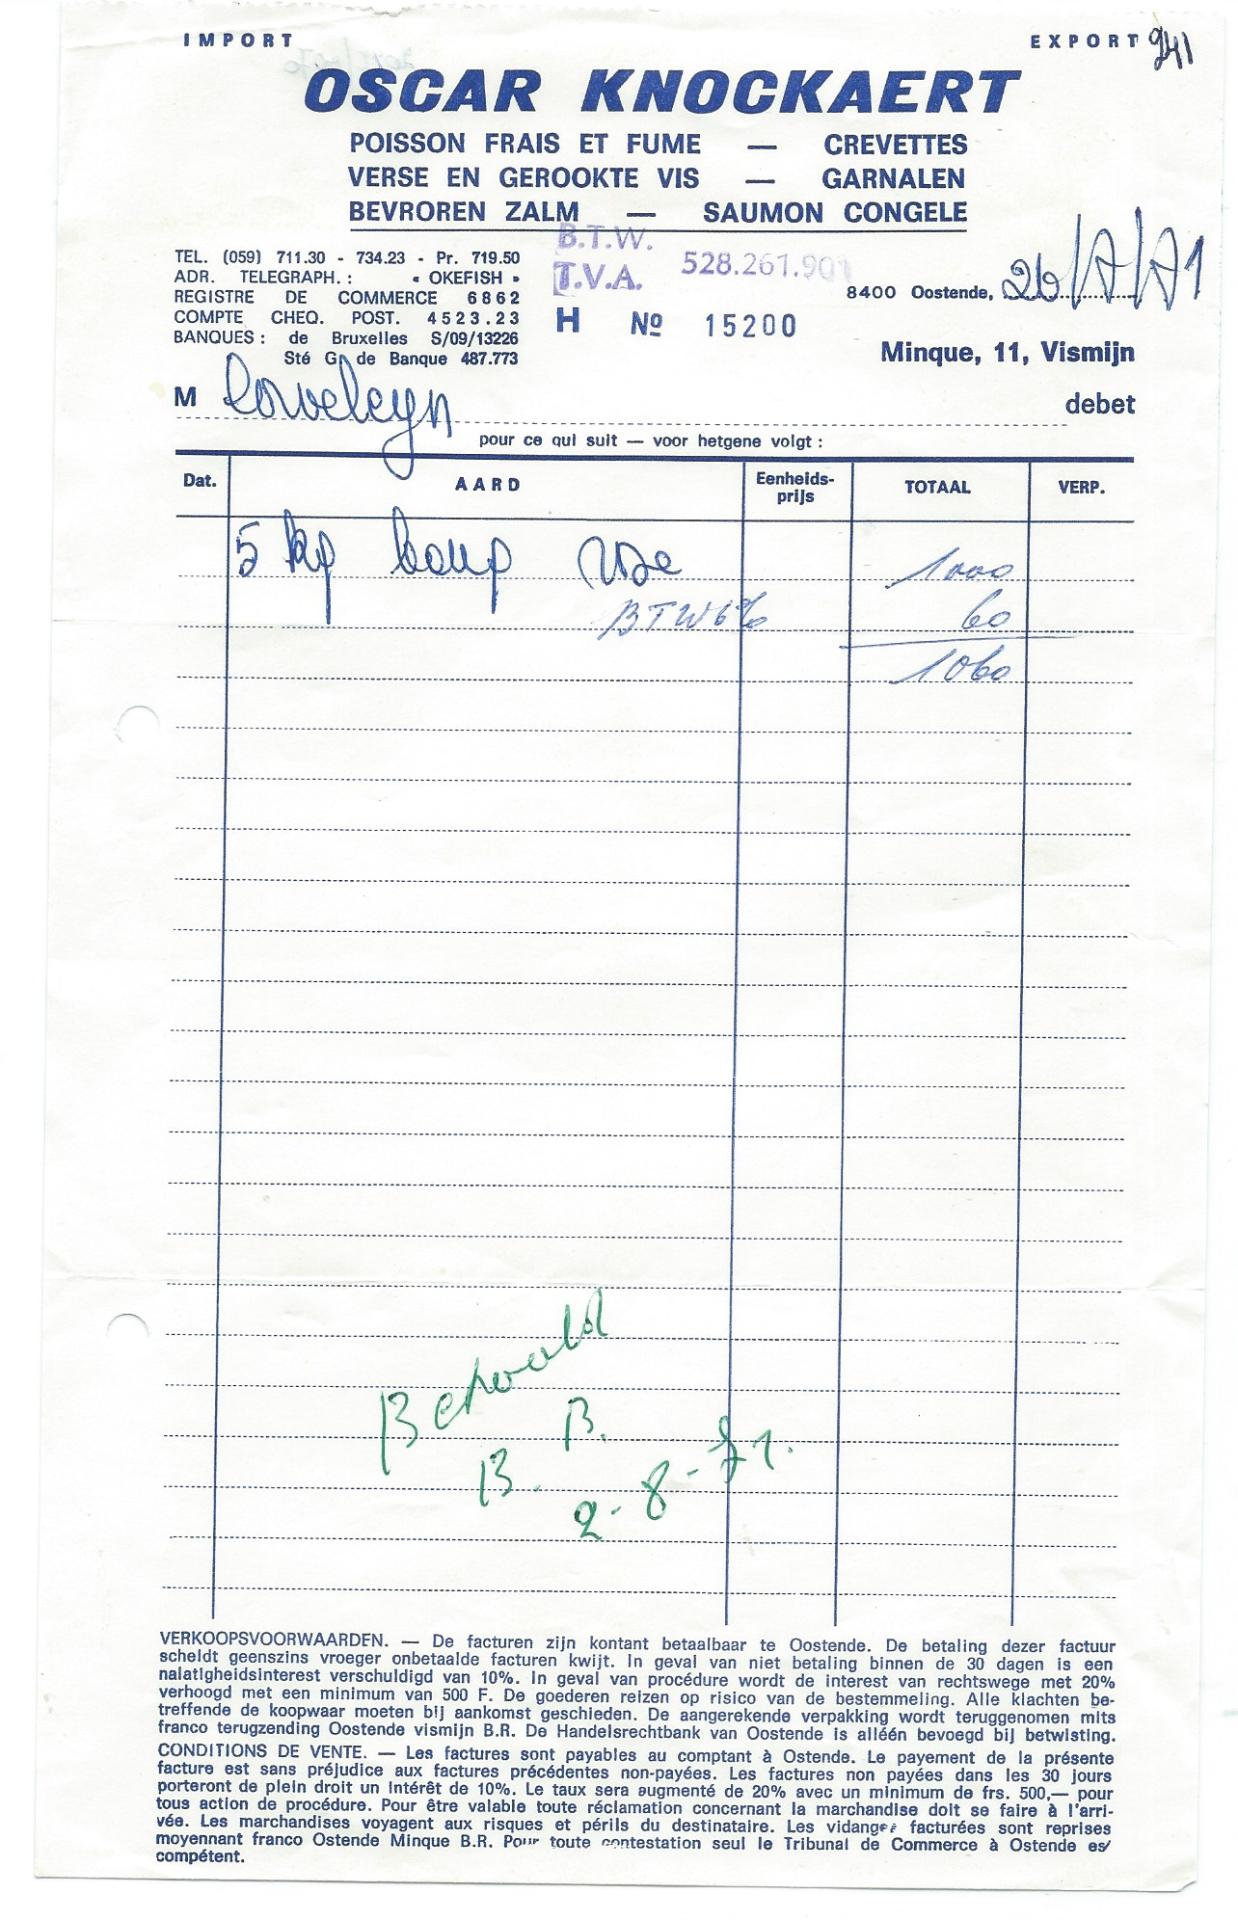 IMPORT EXPORT 941
OSCAR KNOCKAERT
POISSON FRAIS ET FUME — CREVETTES
VERSE EN GEROOKTE VIS — GARNALEN
BEVROREN ZALM — SAUMON CONGELE
B.T.W.
T.V.A. 528.261.901
TEL. (059) 711.30 - 734.23 - Pr. 719.50
ADR. TELEGRAPH. : « OKEFISH »
REGISTRE DE COMMERCE 6862
COMPTE CHEQ. POST. 4523.23
BANQUES : de Bruxelles S/09/13226
Sté G. de Banque 487.773
H Nº 15200
8400 Oostende, 26/7/71
Minque, 11, Vismijn
M debet
pour ce qui suit — voor hetgene volgt :
Dat. AARD Eenheids-prijs TOTAAL VERP.
5 kg 1000
BTW 6% 60
1060
Betaald
B. B.
2-8-71.
VERKOOPSVOORWAARDEN. — De facturen zijn kontant betaalbaar te Oostende. De betaling dezer factuur
scheldt geenszins vroeger onbetaalde facturen kwijt. In geval van niet betaling binnen de 30 dagen is een
nalatigheidsinterest verschuldigd van 10%. In geval van procédure wordt de interest van rechtswege met 20%
verhoogd met een minimum van 500 F. De goederen reizen op risico van de bestemmeling. Alle klachten be-
treffende de koopwaar moeten bij aankomst geschieden. De aangerekende verpakking wordt teruggenomen mits
franco terugzending Oostende vismijn B.R. De Handelsrechtbank van Oostende is alléén bevoegd bij betwisting.
CONDITIONS DE VENTE. — Les factures sont payables au comptant à Ostende. Le payement de la présente
facture est sans préjudice aux factures précédentes non-payées. Les factures non payées dans les 30 jours
porteront de plein droit un intérêt de 10%. Le taux sera augmenté de 20% avec un minimum de frs. 500,— pour
tous action de procédure. Pour être valable toute réclamation concernant la marchandise doit se faire à l'arri-
vée. Les marchandises voyagent aux risques et périls du destinataire. Les vidanges facturées sont reprises
moyennant franco Ostende Minque B.R. Pour toute contestation seul le Tribunal de Commerce à Ostende es
compétent.